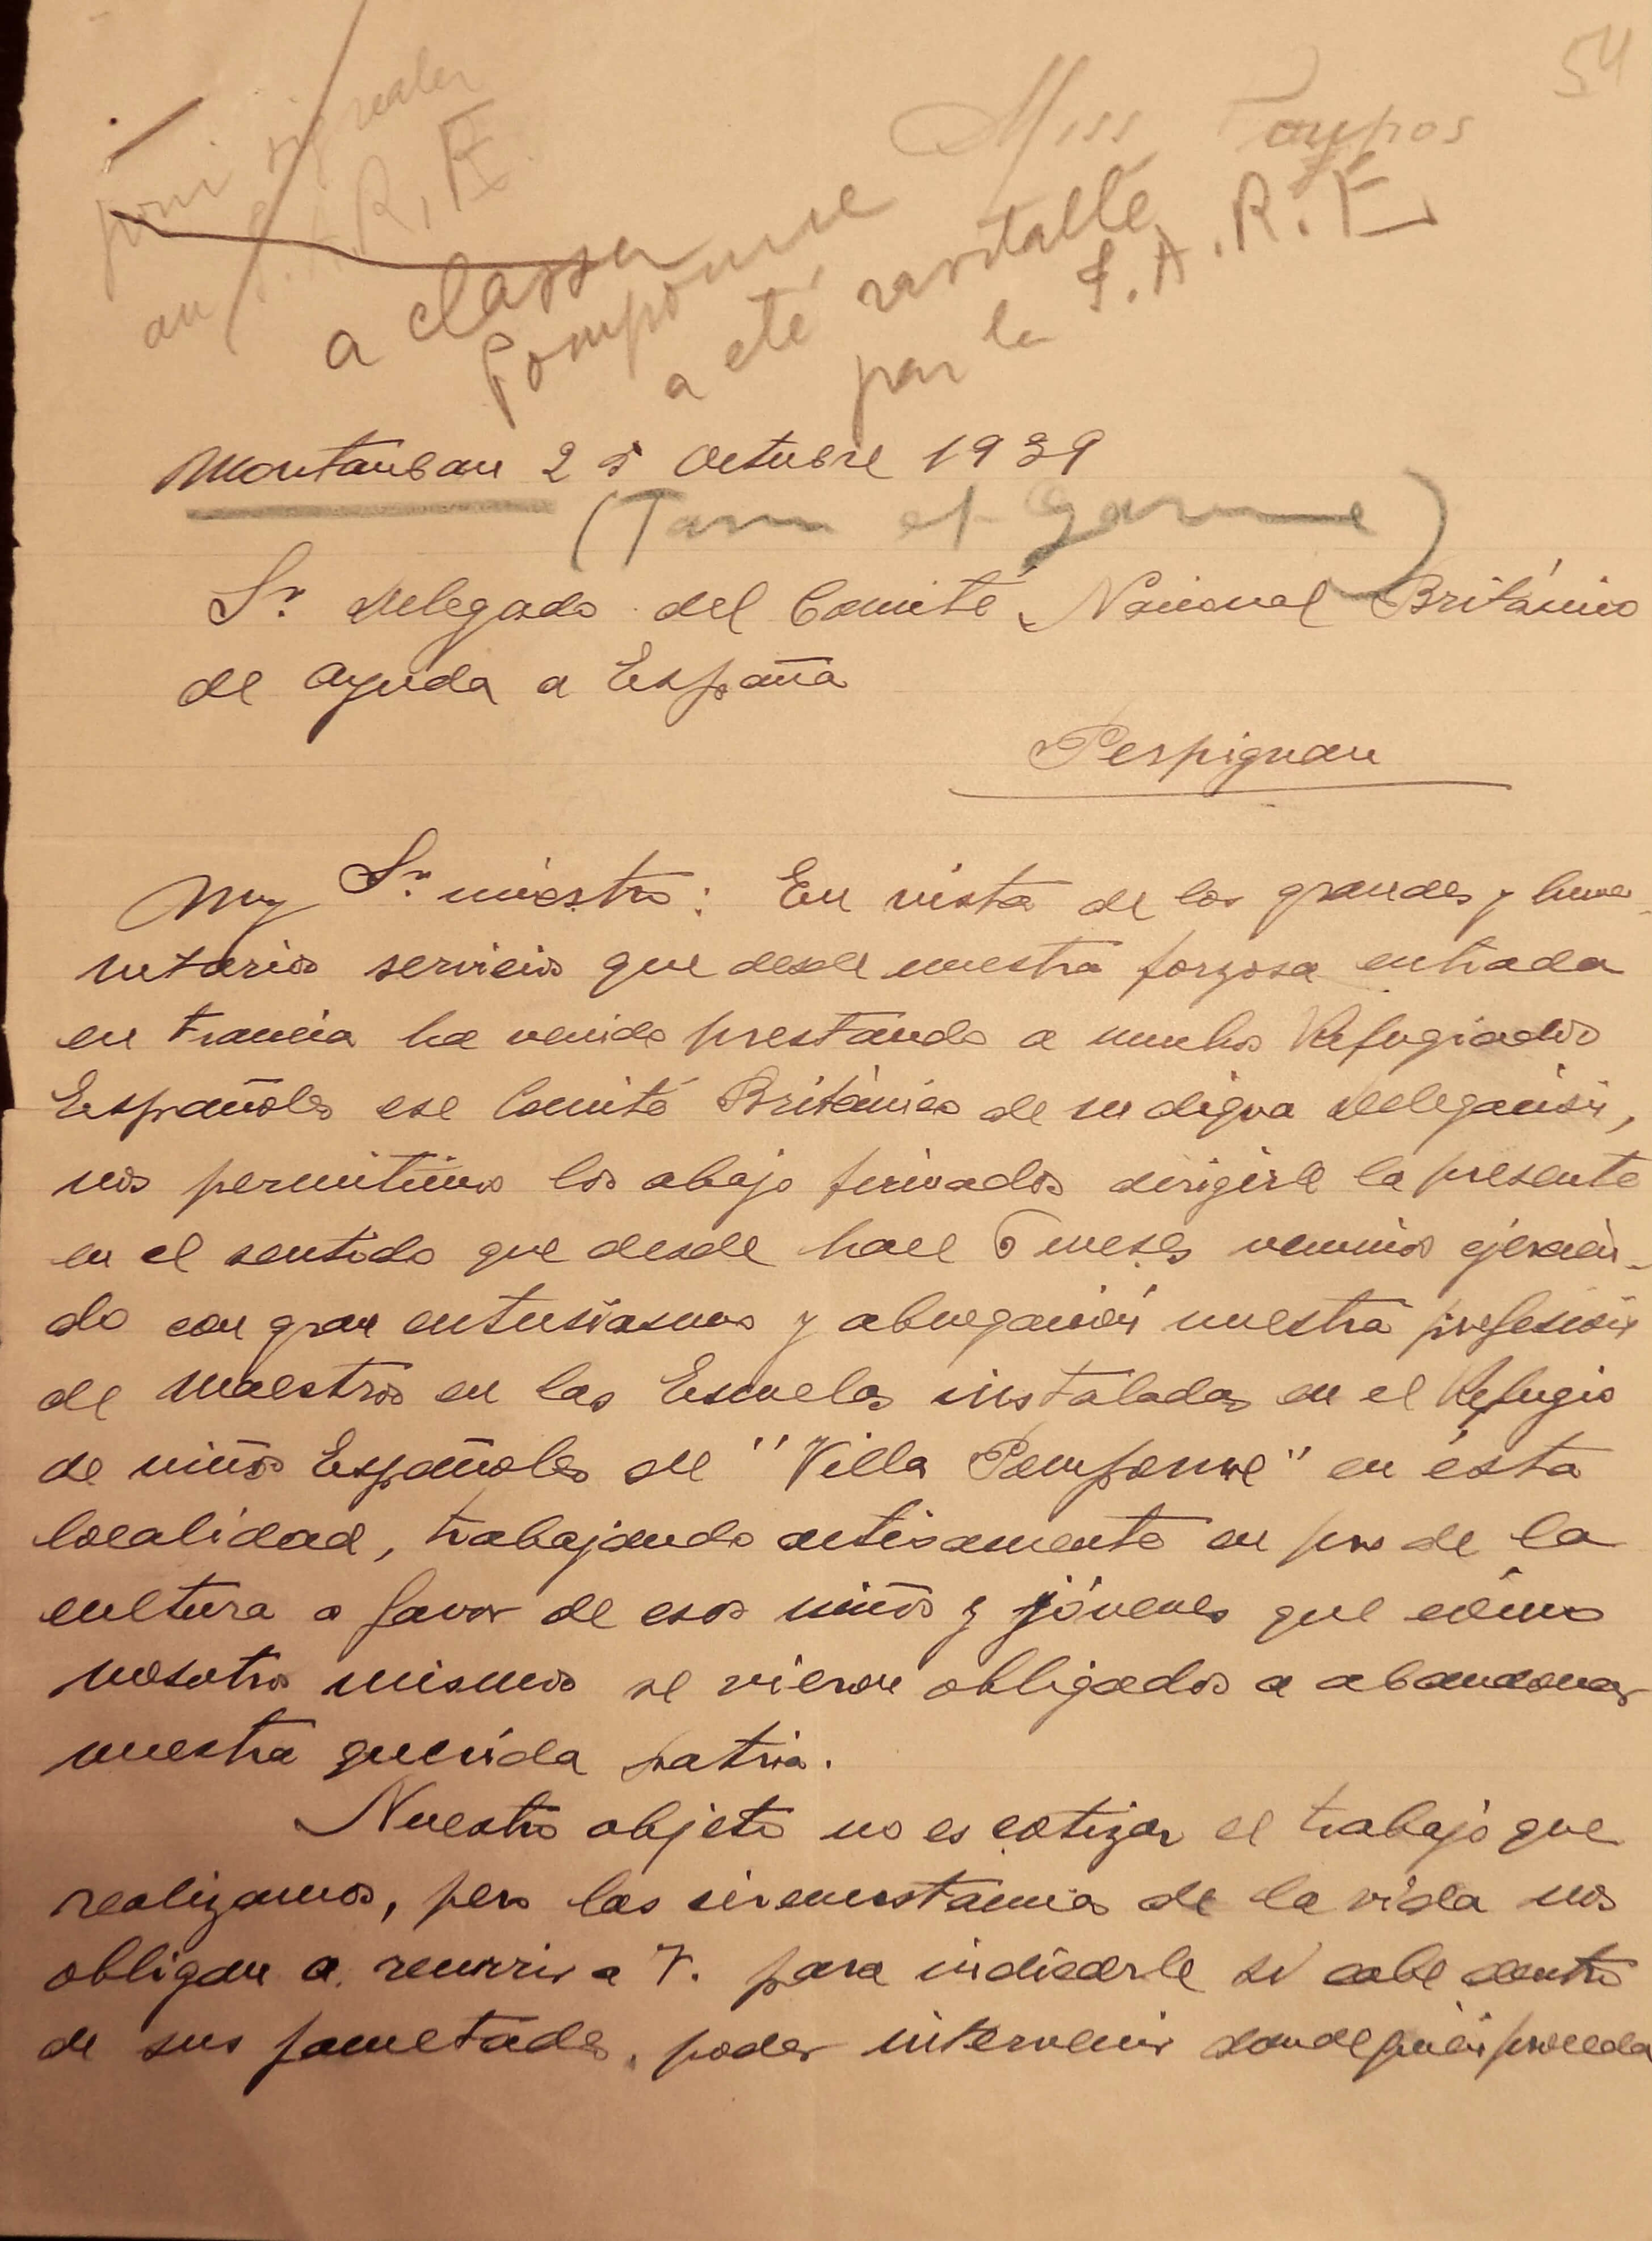 54
Miss
au S.A.R.E
a classer
Pomponne
a eté ravitaillé
par le S.A.R.E.
Montauban 25 Octubre 1939
(Tarn et Garonne)
Sr. Delegado del Comité Nacional Británico
de ayuda a España
Perpignan
Muy Sr. nuestro: En vista de los grandes y huma-
nitarios servicios que desde nuestra forzosa entrada
en Francia ha venido prestando a muchos Refugiados
Españoles ese Comité Británico de su digna Delegación,
nos permitimos los abajo firmados dirigirle la presente
en el sentido que desde hace 6 meses venimos ejercien-
do con gran entusiasmo y abnegación nuestra profesión
de Maestros en las Escuelas instaladas en el Refugio
de niños Españoles de "Villa Pomponne" en ésta
localidad, trabajando activamente en pro de la
cultura a favor de esos niños y jóvenes que cómo
nosotros mismos se vieron obligados a abandonar
nuestra querida patria.
Nuestro objeto no es cotizar el trabajo que
realizamos, pero las circunstancias de la vida nos
obligan a recurrir a V. para indicarle si cabe dentro
de sus facultades, poder intervenir donde proceda